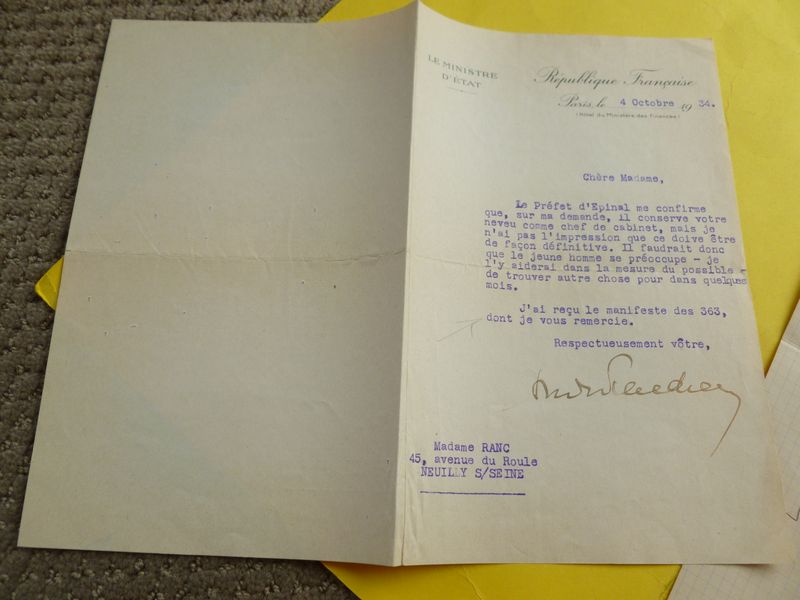 LE MINISTRE
D'ÉTAT
République Française
Paris, le 4 Octobre 1934.
(Hôtel du Ministère des Finances)
Chère Madame,
Le Préfet d'Epinal me confirme
que, sur ma demande, il conserve votre
neveu comme chef de cabinet, mais je
n'ai pas l'impression que ce doive être
de façon définitive. Il faudrait donc
que le jeune homme se préoccupe - je
l'y aiderai dans la mesure du possible -
de trouver autre chose pour dans quelques
mois.
J'ai reçu le manifeste des 363,
dont je vous remercie.
Respectueusement vôtre,
Madame RANC
45, avenue du Roule
NEUILLY S/SEINE